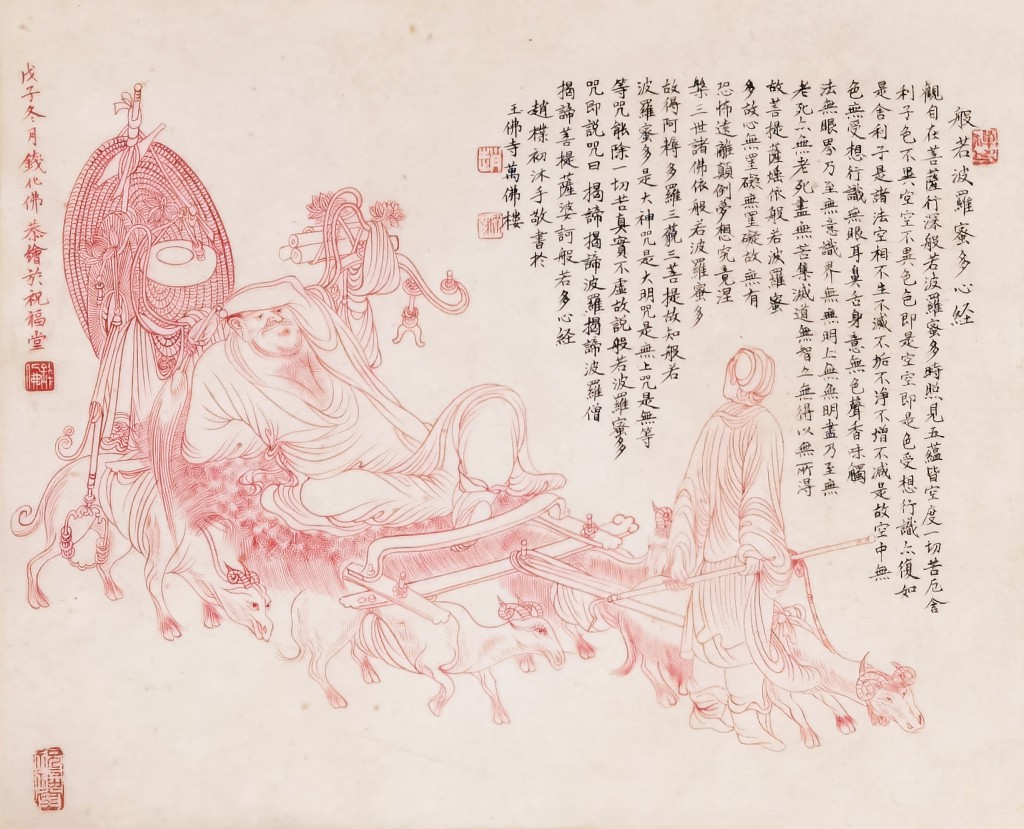 般若波羅蜜多心経
觀自在菩薩行深般若波羅蜜多時照見五蘊皆空度一切苦厄舍
利子色不異空空不異色色即是空空即是色受想行識亦復如
是舍利子是諸法空相不生不滅不垢不淨不增不減是故空中無
色無受想行識無眼耳鼻舌身意無色聲香味觸
法無眼界乃至無意識界無無明亦無無明盡乃至無
老死亦無老死盡無苦集滅道無智亦無得以無所得
故菩提薩埵依般若波羅蜜
多故心無罣礙無罣礙故無有
恐怖遠離顛倒夢想究竟涅
槃三世諸佛依般若波羅蜜多
故得阿耨多羅三藐三菩提故知般若
波羅蜜多是大神咒是大明咒是無上咒是無等
等咒能除一切苦真實不虛故説般若波羅蜜多
咒即説咒曰 揭諦揭諦波羅揭諦波羅僧
揭諦菩提薩婆訶般若多心経
趙樸初沐手敬書於
玉佛寺萬佛樓
戊子冬月錢化佛恭繪於祝福堂